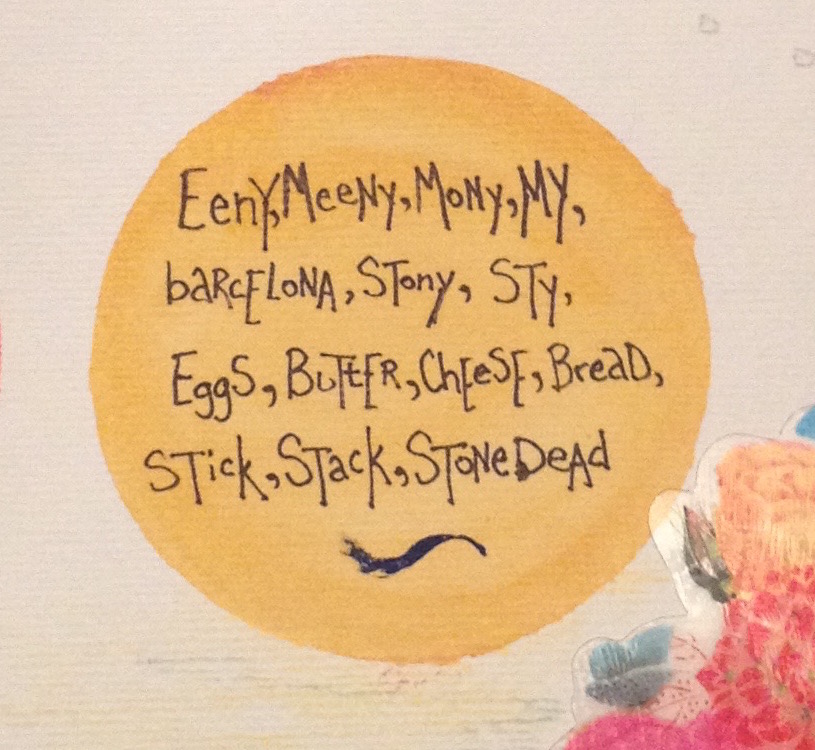 EenY, MeeNy, MoNy, MY,
baRcELoNA, STony, STy,
EggS, BuTtER, ChEeSE, BreaD,
STick, STack, SToNe DeAd